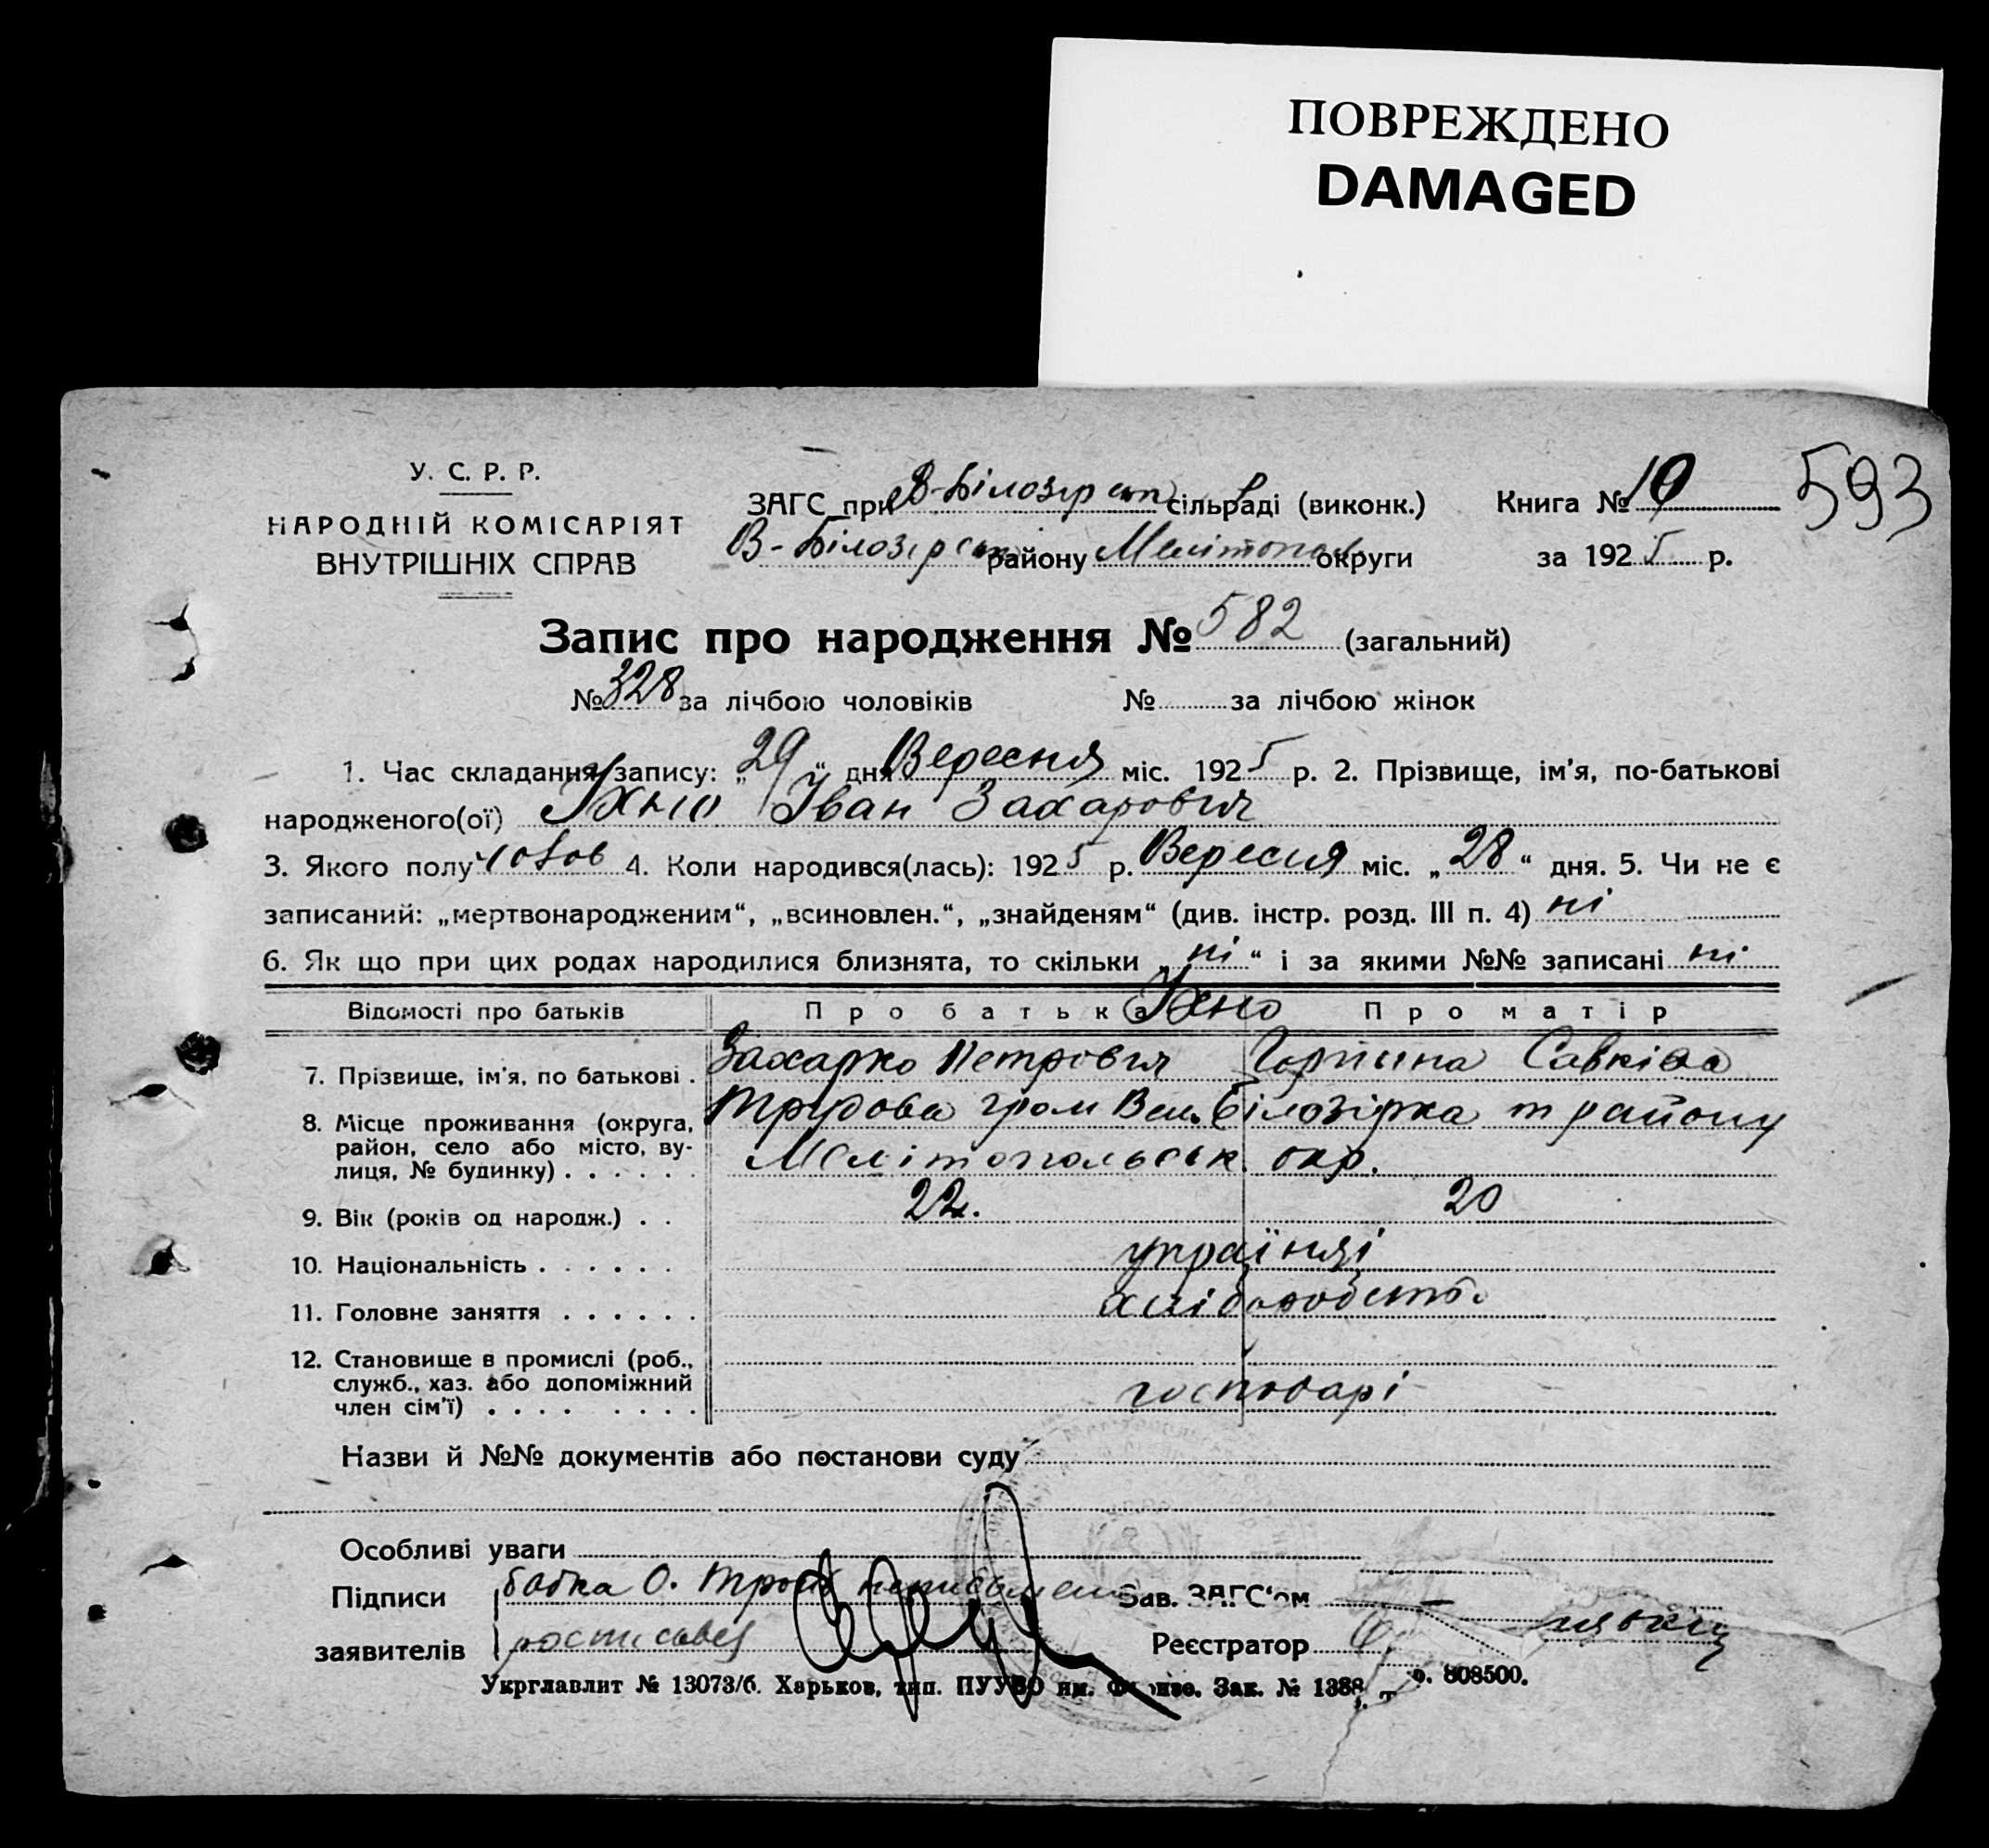 ПОВРЕЖДЕНО
DAMAGED
У. С. Р. Р.
НАРОДНІЙ КОМІСАРІЯТ
ВНУТРІШНІХ СПРАВ
ЗАГС при В-Білозірськ сільраді (виконк.)
В-Білозірськ району Мелітополь округи
Книга № 10
593
за 1925 р.
Запис про народження № 582 (загальний)
№ 328 за лічбою чоловіків № за лічбою жінок
1. Час складання запису: „29“ дня Вересня міс. 1925 р. 2. Прізвище, ім'я, по-батькові
народженого(ої) Їхно Іван Захарович
3. Якого полу чолов 4. Коли народився(лась): 1925 р. Вересня міс. „28“ дня. 5. Чи не є
записаний: „мертвонародженим“, „всиновлен.“, „знайденям“ (див. інстр. розд. III п. 4) ні
6. Як що при цих родах народилися близнята, то скільки „ні“ і за якими №№ записані ні
Відомості про батьків Про батька Їхно Про матір
7. Прізвище, ім'я, по батькові . Захарко Петрович Горпина Савківа
8. Місце проживання (округа, район, село або місто, вулиця, № будинку) . . . . . . Трудова гром Вел. Білозірка т району
Мелітопольськ. окр.
9. Вік (років од народж.) . . 22. 20
10. Національність . . . . . . українці
11. Головне заняття . . . . . . хліборобств.
12. Становище в промислі (роб., служб., хаз. або допоміжний член сім'ї) . . . . . . . . господарі
Назви й №№ документів або постанови суду
Особливі уваги
Підписи бабка О. неписьмен Зав. ЗАГС'ом
заявителів Реєстратор
Укрглавлит № 13073/б. Харьков, тип. ПУУВО им. Фрунзе. Зак. № 1388. 808500.